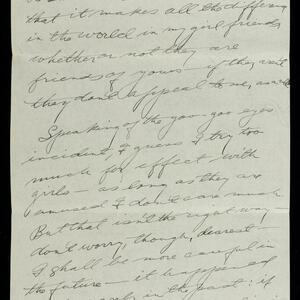 that it makes all the difference
in the world in my girl friends
whether or not they are
friends of yours — if they aren't
they don't appeal to me, as
Speaking of the goo-goo eyes
incident, I guess I try too
much for effect with
girls — as long as they are
amused I don't care much
But that isn't the right way,
don't worry, though, dearest —
I shall be more careful in
the future — it happened
in the past: if